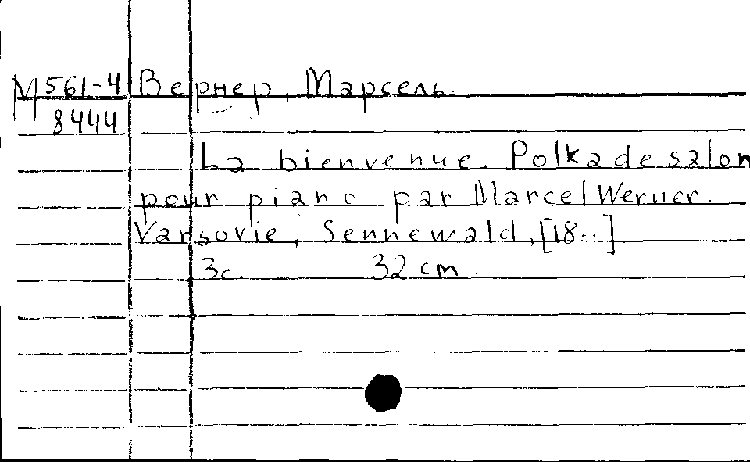 М 561-4 Вернер, Марсель.
8444
La bienvenue. Polka de salon
pour piano par Marcel Werner.
Varsovie, Sennewald, [18..]
3с. 32 cm